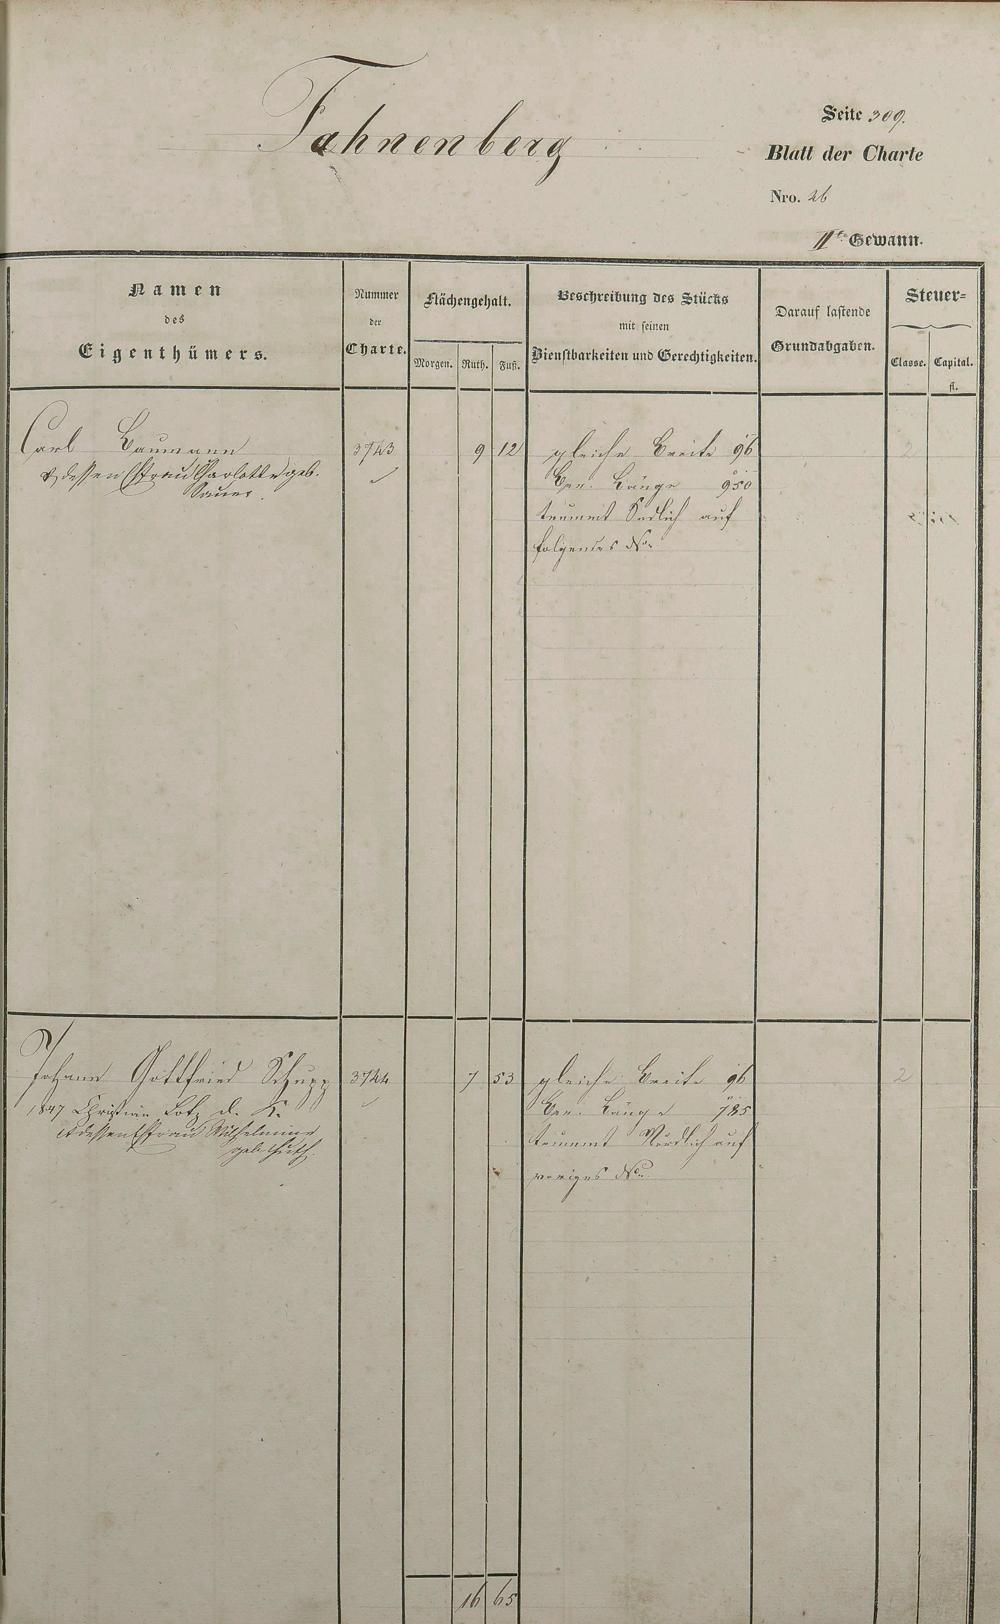 Fahnenberg
Seite 309.
Blatt der Charte
Nro. 26
IIte Gewann.
Namen
des
Eigenthümers.
Nummer
der
Charte.
Flächengehalt.
Morgen. Ruth. Fuß.
Beschreibung des Stücks
mit seinen
Dienstbarkeiten und Gerechtigkeiten.
Darauf lastende
Grundabgaben.
Steuer=
Classe. Capital.
fl.
Carl Baumann 3743 9 12 gleiche Breite 96 2
& dessen Ehefrau Charlotte geb.
Sauer.
Ger. Länge 950
auf
folgendes No.
Johann Gottfried Schupp 3744 7 53 gleiche Breite 96 2
1847 Christian Lotz d. K.
& dessen Ehefrau Wilhelmine
geb.
Ger. Länge 785
Nördlich auf
voriges No.
16 65